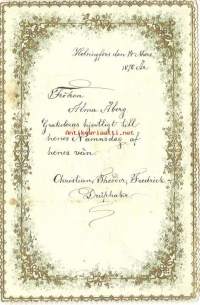 Helsingfors den 14 Mars
1876
Fröken
Alma Åberg
Gratuleras hjertligt till
henes Namnsdag af
henes vän
Christian, Theodor, Fredrick
antikvariaatti.net